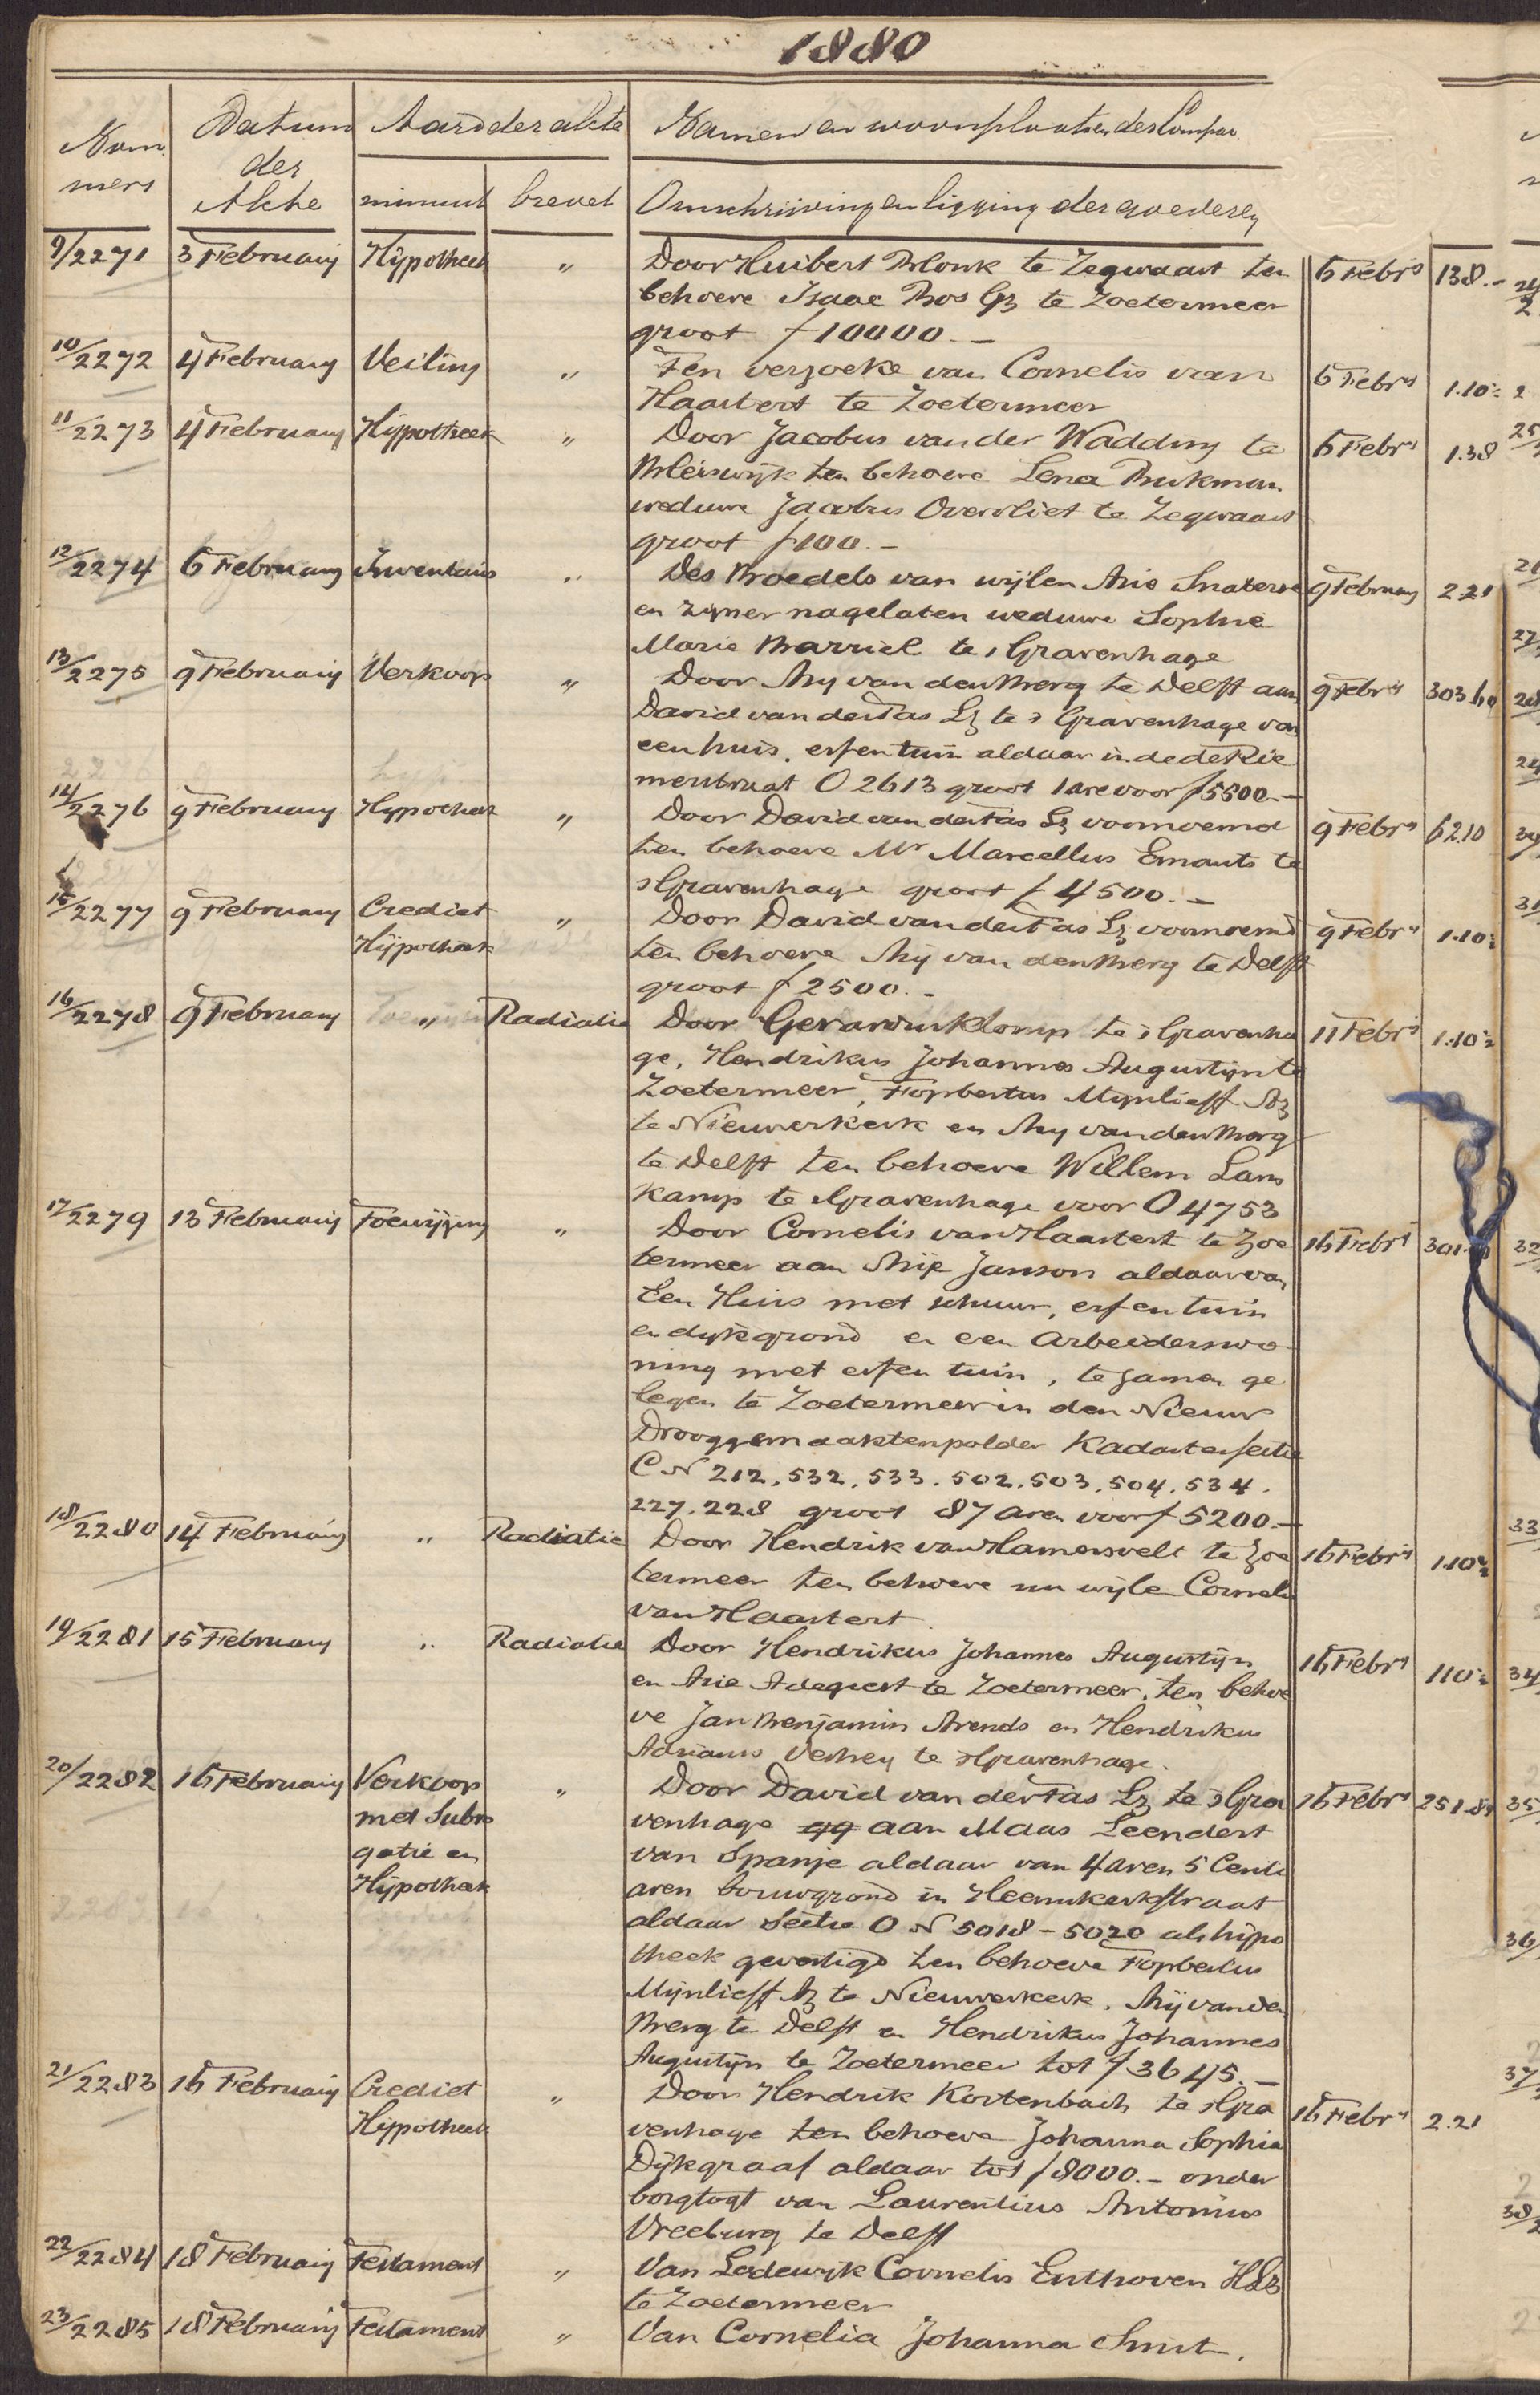 1880
Nom
mers
Datum
der
Akte
Aard der akte
minuut brevet
Namen en woonplaatsen der Compar
Omschrijving en ligging der goederen
9/2271 3 February Hypotheek " Door Huibert Blonk te Zegwaart ten 6 Febrij 138.-
behoeve Isaac Bos Gz te Zoetermeer
groot f 10000.-
10/2272 4 February Veiling " Ten verzoeke van Cornelis van 6 Febrij 1.10½
Haastert te Zoetermeer
11/2273 4 February Hypotheek " Door Jacobus van der Wadding te 6 Febrij 1.38
Bleiswijk ten behoeve Lena Buikman
weduwe Jacobus Overvliet te Zegwaart
groot f 100.-
12/2274 6 February Inventaris " Des Boedels van wijlen Arie Snaterse 9 February 221
en zijner nagelaten weduwe Sophie
Marie Barriel te s Gravenhage
13/2275 9 February Verkoop " Door Arij van den Berg te Delft aan 9 Febrij 303 60
David van der Tas Lz te s Gravenhage van
een huis, erf en tuin aldaar in de de Rie
merstraat O 2613 groot 1 are voor f 5500.-
14/2276 9 February Hypotheek " Door David van der Tas Lz voornoemd 9 Febrij 62.10
ten behoeve Mr Marcellus Emants te
s Gravenhage groot f 4500.-
15/2277 9 February Crediet " Door David van der Tas Lz voornoemd 9 Febrij 1.10½
Hypotheek ten behoeve Arij van den Berg te Delft
groot f 2500.-
16/2278 9 February " Radiatie Door Gerardus Klomp te s Gravenha 11 Febrij 1.10½
ge, Hendrikus Johannes Augustijn te
Zoetermeer, Fopbertus Mijnlieff Az
te Nieuwerkerk en Arij van den Berg
te Delft ten behoeve Willem Lans
kamp te s Gravenhage voor O 4753
17/2279 13 February Toewijzing " Door Cornelis van Haastert te Zoe 16 Febrij
termeer aan Arije Janson aldaar van
Een Huis met schuur, erf en tuin
en dijkgrond en een arbeiderswo
ning met erf en tuin, te zamen ge
legen te Zoetermeer in den Nieuw
Drooggemaaktenpolder Kadaster sectie
C N 212, 532, 533, 502, 503, 504, 534,
227, 228 groot 87 aren voor f 5200.-
18/2280 14 February " Radiatie Door Hendrik van Hamersvelt te Zoe 16 Febrij 1.10½
termeer ten behoeve nu wijlen Cornelis
van Haastert
19/2281 15 February " Radiatie Door Hendrikus Johannes Augustijn 16 Febrij 110½
en Arie Adegeest te Zoetermeer, ten behoe
ve Jan Benjamin Arends en Hendrikus
Adrianus Verheij te s Gravenhage.
20/2282 16 February Verkoop " Door David van der Tas Lz te s Gra 16 Febrij 251.84
met Subro venhage qq aan Maas Leendert
gatie en van Spanje aldaar van 4 aren 5 Centi
Hypotheek aren bouwgrond in Heemskerkstraat
aldaar Sectie O N 5018 - 5020 als hypo
theek gevestigd ten behoeve Fopbertus
Mijnlieff Az te Nieuwerkerk, Arij van den
Berg te Delft en Hendrikus Johannes
Augustijn te Zoetermeer tot f 3645.-
21/2283 16 February Crediet " Door Hendrik Kortenbach te s Gra 16 Febrij 2.21
Hypotheek venhage ten behoeve Johanna Sophia
Dijkgraaf aldaar tot f 8000.- onder
borgtogt van Laurentius Antonius
Vreeburg te Delft
22/2284 18 February Testament " Van Lodewijk Cornelis Enthoven HLz
te Zoetermeer
23/2285 18 February Testament " Van Cornelia Johanna Smit.